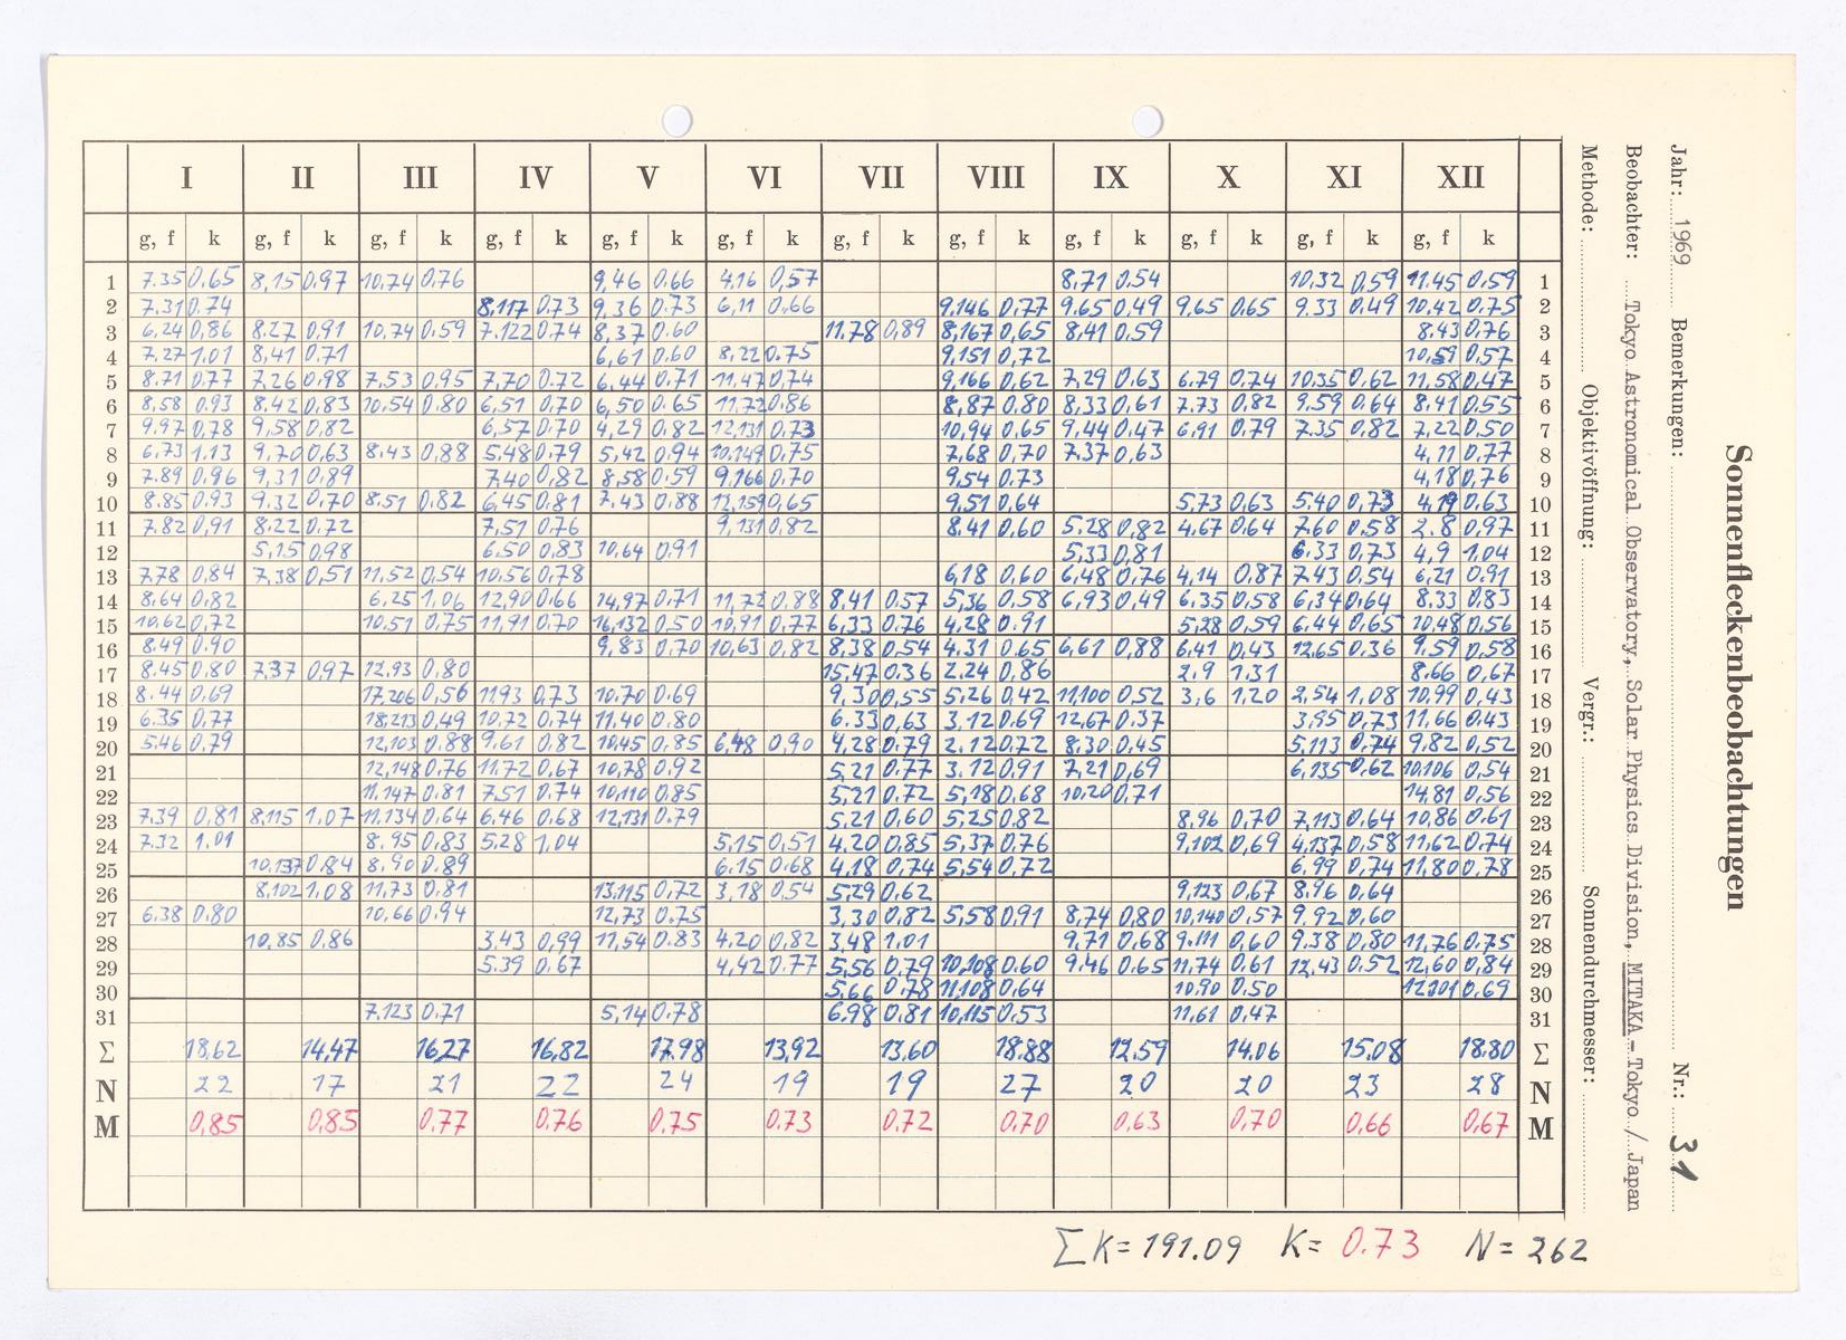 I II III IV V VI VII VIII IX X XI XII
g, f k g, f k g, f k g, f k g, f k g, f k g, f k g, f k g, f k g, f k g, f k g, f k
1 7.35 0.65 8,15 0.97 10.74 0.76 9,46 0.66 4.16 0,57 8,71 0.54 10,32 0,59 11.45 0.59 1
2 7.31 0.74 8,117 0.73 9,36 0.73 6,11 0.66 9.146 0.77 9.65 0,49 9,65 0.65 9.33 0,49 10,42 0,75 2
3 6,24 0,86 8.27 0,91 10,74 0.59 7.122 0.74 8,37 0.60 11.78 0,89 8,167 0,65 8,41 0.59 8.43 0.76 3
4 7,27 1,01 8,41 0,71 6,61 0.60 8,22 0.75 9,151 0,72 10,59 0,57 4
5 8.71 0,77 7,26 0,98 7,53 0,95 7,70 0.72 6,44 0.71 11,47 0,74 9,166 0,62 7,29 0,63 6.79 0,74 10.35 0,62 11,58 0,47 5
6 8,58 0.93 8.42 0,83 10,54 0,80 6,51 0,70 6,50 0.65 11,72 0.86 8,87 0.80 8,33 0,61 7.73 0,82 9,59 0,64 8,41 0,55 6
7 9,97 0,78 9,58 0,82 6,57 0.70 4,29 0,82 12,131 0,73 10,94 0,65 9,44 0,47 6,91 0,79 7.35 0,82 7,22 0,50 7
8 6,73 1.13 9,70 0,63 8,43 0,88 5,48 0.79 5,42 0,94 10,149 0,75 7,68 0,70 7.37 0,63 4,11 0,77 8
9 7.89 0,96 9,31 0,89 7,40 0,82 8,58 0.59 9,166 0,70 9,54 0.73 4,18 0,76 9
10 8.85 0.93 9,32 0,70 8,51 0,82 6,45 0,81 7,43 0.88 12,159 0,65 9,51 0,64 5,73 0,63 5.40 0,73 4,19 0.63 10
11 7.82 0,91 8.22 0.72 7,51 0,76 9,131 0,82 8.41 0,60 5,28 0,82 4,67 0.64 7,60 0,58 2.8 0,97 11
12 5,15 0,98 6.50 0,83 10,64 0.91 5,33 0,81 6.33 0,73 4,9 1.04 12
13 7.78 0,84 7,38 0,51 11,52 0,54 10,56 0,78 6,18 0,60 6,48 0,76 4,14 0,87 7.43 0,54 6,21 0.91 13
14 8,64 0,82 6,25 1,06 12,90 0.66 14,97 0,71 11,72 0,88 8,41 0.57 5,36 0,58 6,93 0,49 6,35 0,58 6,34 0,64 8.33 0.83 14
15 10,62 0,72 10,51 0,75 11,91 0,70 16,132 0,50 10,91 0,77 6,33 0.76 4,28 0.91 5,28 0,59 6,44 0,65 10,48 0,56 15
16 8.49 0.90 9,83 0,70 10,63 0,82 8,38 0,54 4.31 0.65 6,61 0,88 6,41 0,43 12,65 0.36 9.59 0,58 16
17 8.45 0,80 7,37 0,97 12,93 0,80 15,47 0,36 2.24 0,86 2.9 1.31 8.66 0,67 17
18 8.44 0,69 17,206 0,56 11,93 0,73 10,70 0.69 9,30 0,55 5,26 0,42 11,100 0,52 3,6 1,20 2,54 1,08 10,99 0,43 18
19 6.35 0,77 18,213 0,49 10,72 0,74 11,40 0,80 6.33 0,63 3,12 0.69 12,67 0.37 3,95 0,73 11,66 0.43 19
20 5.46 0.79 12,103 0.88 9,61 0,82 10,45 0,85 6,48 0,90 4,28 0.79 2.12 0,72 8.30 0,45 5,113 0,74 9,82 0,52 20
21 12,148 0,76 11.72 0,67 10,78 0,92 5,21 0.77 3.12 0,91 7,21 0,69 6,135 0,62 10,106 0,54 21
22 11,147 0.81 7.51 0.74 10,110 0,85 5,21 0.72 5,18 0,68 10,20 0,71 14,81 0,56 22
23 7.39 0,81 8,115 1,07 11,134 0,64 6.46 0.68 12,131 0.79 5,21 0,60 5,25 0.82 8,96 0,70 7,113 0,64 10,86 0.61 23
24 7.32 1,01 8,95 0,83 5.28 1,04 5,15 0,51 4.20 0,85 5,37 0.76 9,102 0,69 4,137 0,58 11,62 0,74 24
25 10,137 0,84 8,90 0,89 6.15 0.68 4,18 0,74 5,54 0,72 6.99 0,74 11,80 0.78 25
26 8,102 1,08 11,73 0,81 13,115 0,72 3,18 0,54 5,29 0,62 9,123 0,67 8.96 0,64 26
27 6.38 0.80 10,66 0.94 12,73 0.75 3,30 0,82 5,58 0.91 8,74 0,80 10,140 0,57 9,92 0,60 27
28 10,85 0,86 3,43 0,99 11,54 0.83 4.20 0,82 3,48 1.01 9,71 0,68 9.111 0,60 9.38 0,80 11,76 0.75 28
29 5.39 0.67 4,42 0.77 5,56 0,79 10,108 0.60 9.46 0.65 11,74 0.61 12,43 0.52 12,60 0,84 29
30 5.66 0,78 11,108 0,64 10,90 0.50 12,101 0.69 30
31 7.123 0.71 5,14 0.78 6.98 0.81 10,115 0.53 11,61 0,47 31
Σ 18,62 14,47 16,27 16,82 17.98 13,92 13,60 18.88 12.59 14.06 15,08 18.80 Σ
N 22 17 21 22 24 19 19 27 20 20 23 28 N
M 0,85 0,85 0.77 0.76 0.75 0.73 0.72 0.70 0,63 0,70 0,66 0.67 M
Σ K = 191.09 K = 0.73 N = 262
Sonnenfleckenbeobachtungen
Jahr: 1969 Bemerkungen: Nr.: 31
Beobachter: Tokyo Astronomical Observatory, Solar Physics Division, MITAKA - Tokyo / Japan
Methode: Objektivöffnung: Vergr.: Sonnendurchmesser: